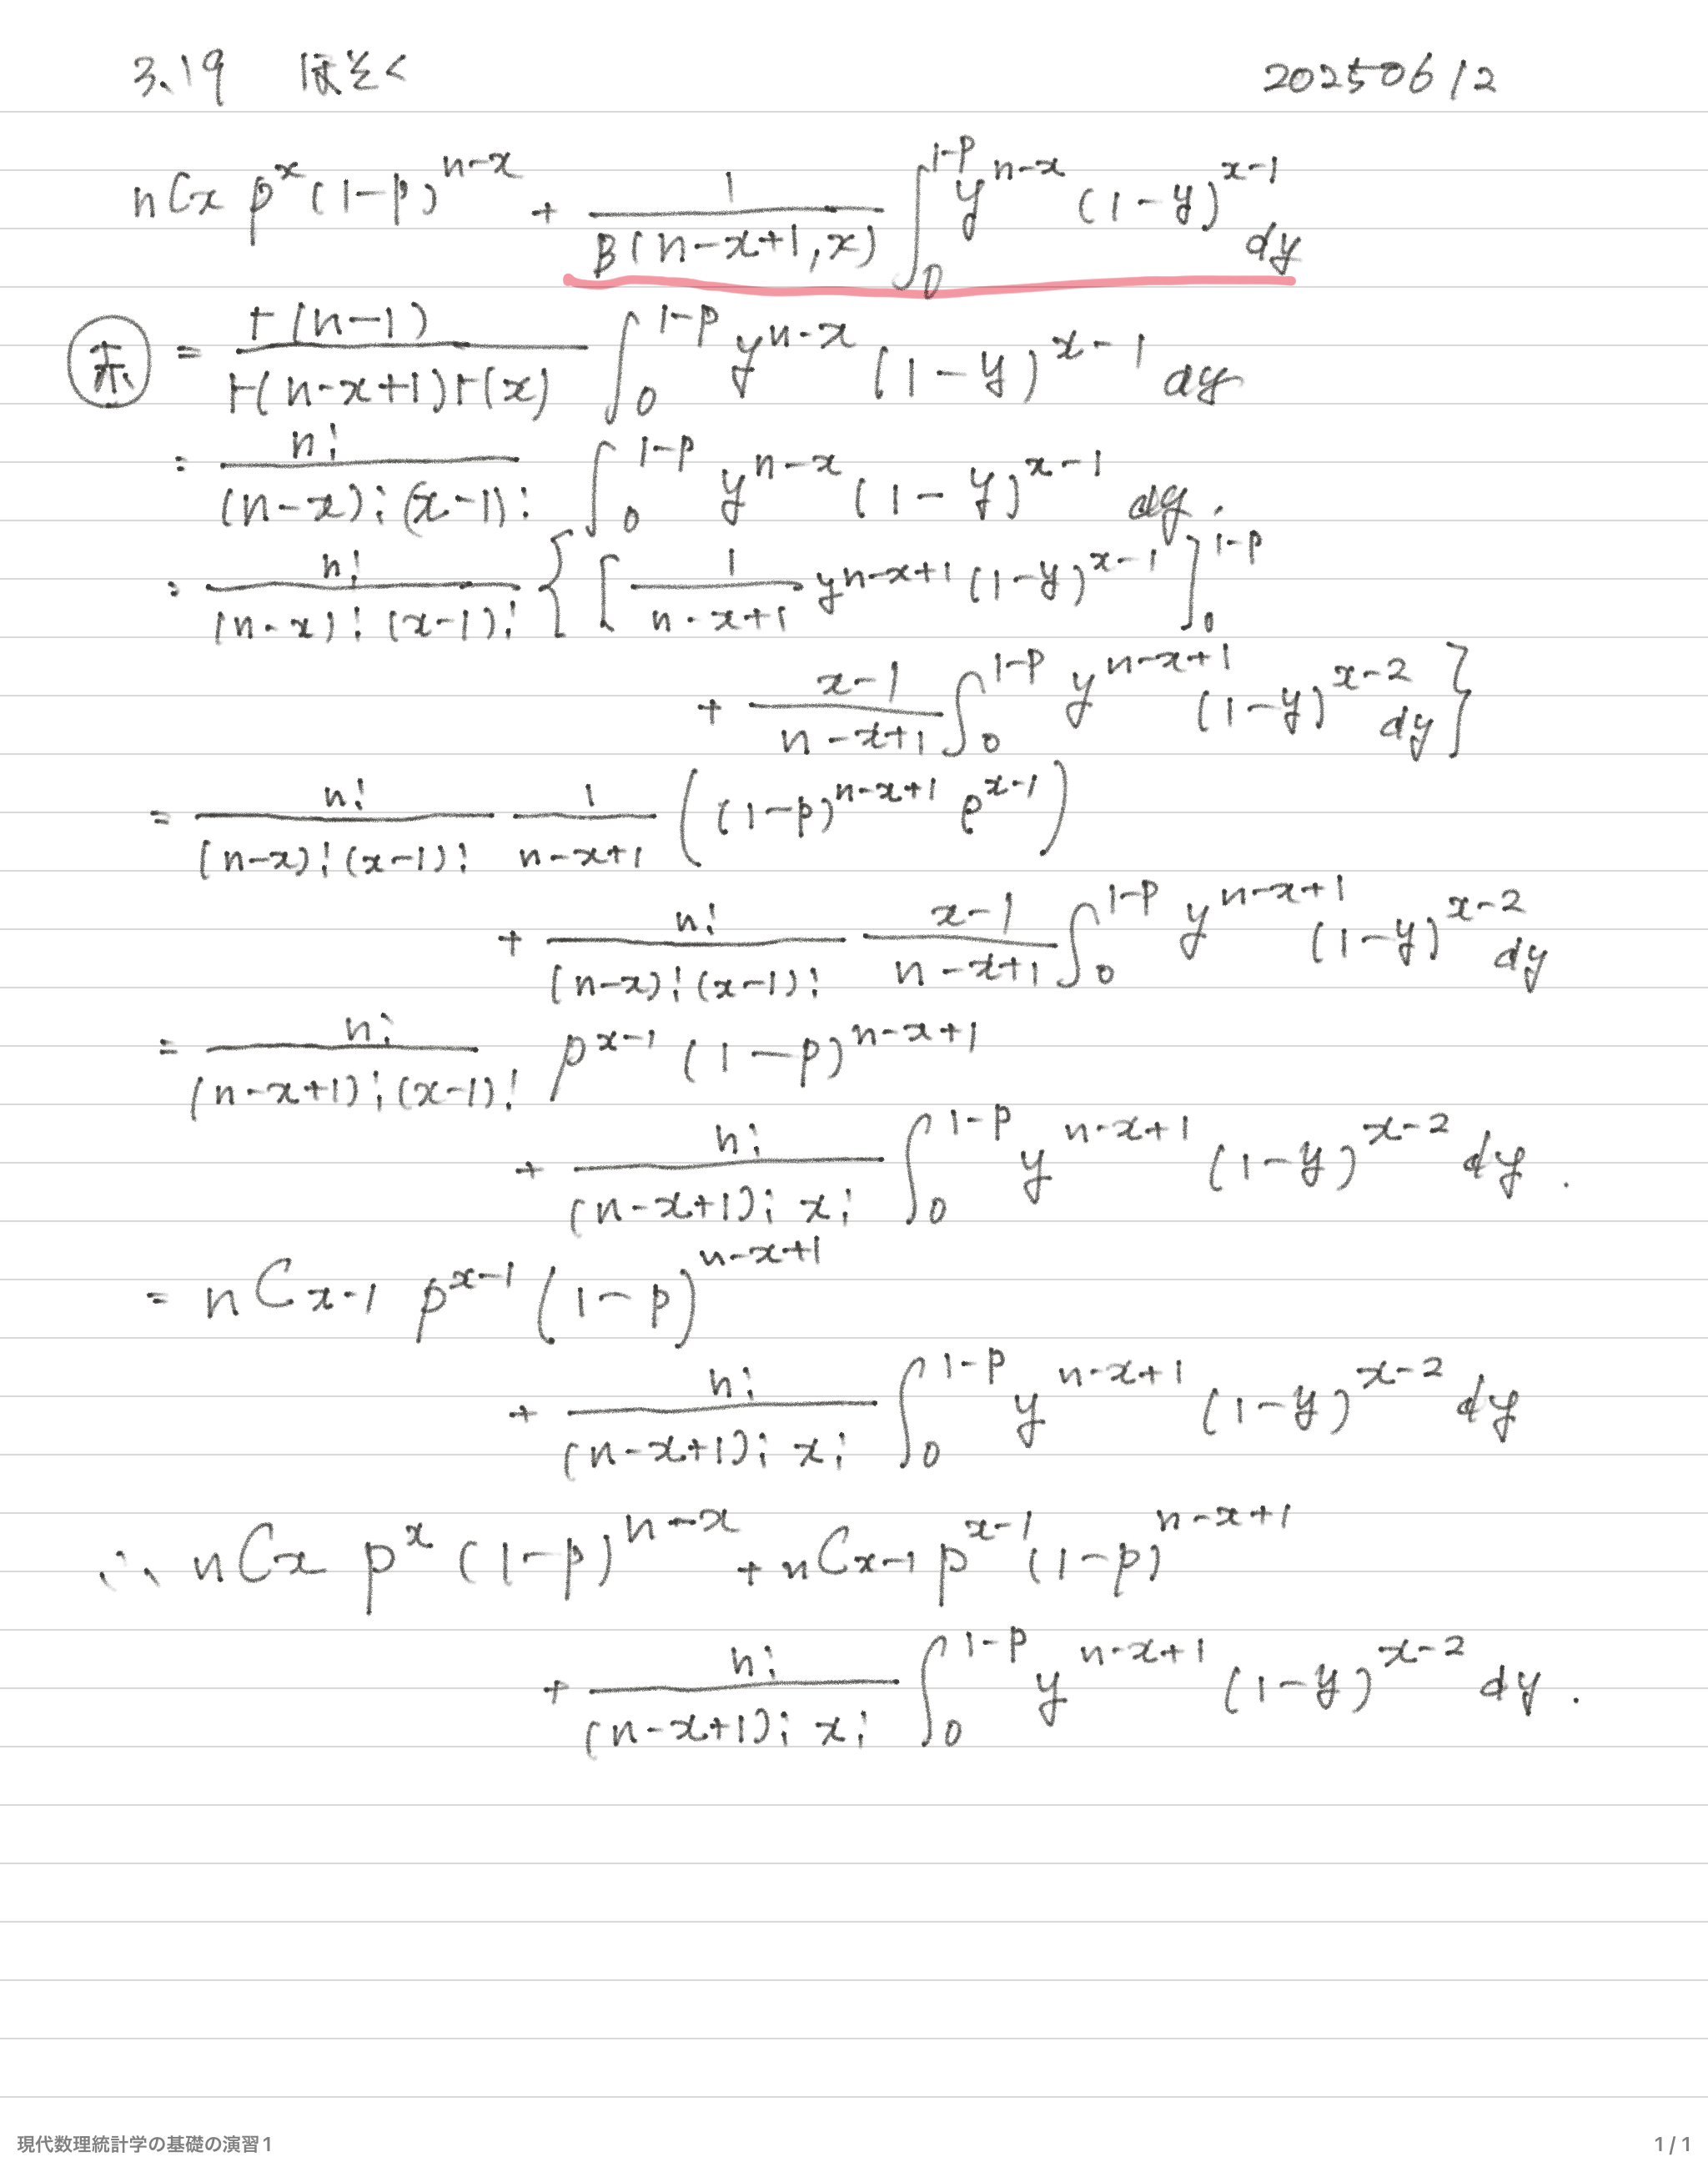 3.19 ほそく 20250612
nCx p^x (1-p)^{n-x} + \frac{1}{B(n-x+1, x)} \int_0^{1-p} y^{n-x} (1-y)^{x-1} dy
赤 = \frac{Γ(n-1)}{Γ(n-x+1)Γ(x)} \int_0^{1-p} y^{n-x} (1-y)^{x-1} dy
= \frac{n!}{(n-x)!(x-1)!} \int_0^{1-p} y^{n-x} (1-y)^{x-1} dy.
= \frac{n!}{(n-x)!(x-1)!} \{ [ \frac{1}{n-x+1} y^{n-x+1} (1-y)^{x-1} ]_0^{1-p}
+ \frac{x-1}{n-x+1} \int_0^{1-p} y^{n-x+1} (1-y)^{x-2} dy \}
= \frac{n!}{(n-x)!(x-1)!} \frac{1}{n-x+1} ( (1-p)^{n-x+1} p^{x-1} )
+ \frac{n!}{(n-x)!(x-1)!} \frac{x-1}{n-x+1} \int_0^{1-p} y^{n-x+1} (1-y)^{x-2} dy
= \frac{n!}{(n-x+1)!(x-1)!} p^{x-1} (1-p)^{n-x+1}
+ \frac{n!}{(n-x+1)! x!} \int_0^{1-p} y^{n-x+1} (1-y)^{x-2} dy.
= nCx-1 p^{x-1} (1-p)^{n-x+1}
+ \frac{n!}{(n-x+1)! x!} \int_0^{1-p} y^{n-x+1} (1-y)^{x-2} dy
∴ nCx p^x (1-p)^{n-x} + nCx-1 p^{x-1} (1-p)^{n-x+1}
+ \frac{n!}{(n-x+1)! x!} \int_0^{1-p} y^{n-x+1} (1-y)^{x-2} dy.
現代数理統計学の基礎の演習1 1 / 1